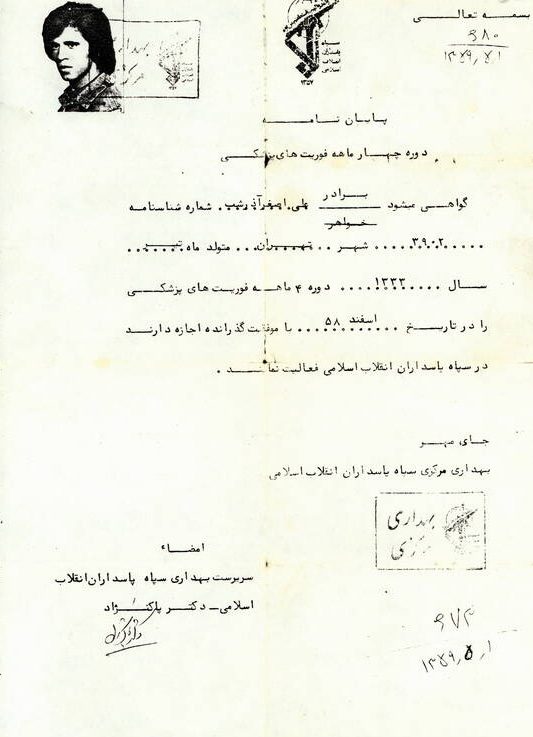 بسمه تعالی
۶۸۰
۱۳۵۹/۵/۱
بهداری
سپاه
پاسداران
انقلاب
اسلامی
۱۳۵۷
پایان نامه
دوره چهار ماهه فوریت های پزشکی
گواهی میشود برادر خواهر علی اصغر شماره شناسنامه
۳۹۰۲ شهر تهران متولد ماه تیر
سال ۱۳۳۳ دوره ۴ ماهه فوریت های پزشکی
را در تاریخ اسفند ۵۸ با موفقیت گذرانده اجازه دارند
در سپاه پاسداران انقلاب اسلامی فعالیت نمایند .
جای مهر
بهداری مرکزی سپاه پاسداران انقلاب اسلامی
بهداری
مرکزی
امضاء
سرپرست بهداری سپاه پاسداران انقلاب
اسلامی - دکتر پاکنژاد
۱۳۵۹/۵/۱